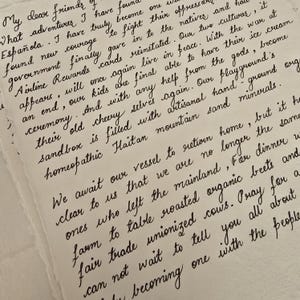 My dear friends of
What adventures, I have found
Española. I have truly become one wi
found new courage to fight their oppressive
government finally gave in to the natives, and have
Airline Rewards cards reinstated. Our two cultures, it
appears, will once again live in peace. With the war at
an end, our kids are final able to have their ice cream
ceremony. And with any help from the gods, become
their old cheery selves again. Our playground's
sandbox is filled with artisanal hand-ground orga
homeopathic Haitan mountain sand minerals.
We await our vessel to return home, but it h
clear to us that we are no longer the same
ones who left the mainland. For dinner
farm to table roasted organic beets and
fair trade unionized cows. Pray for a
can not wait to tell you all about
becoming one with the people